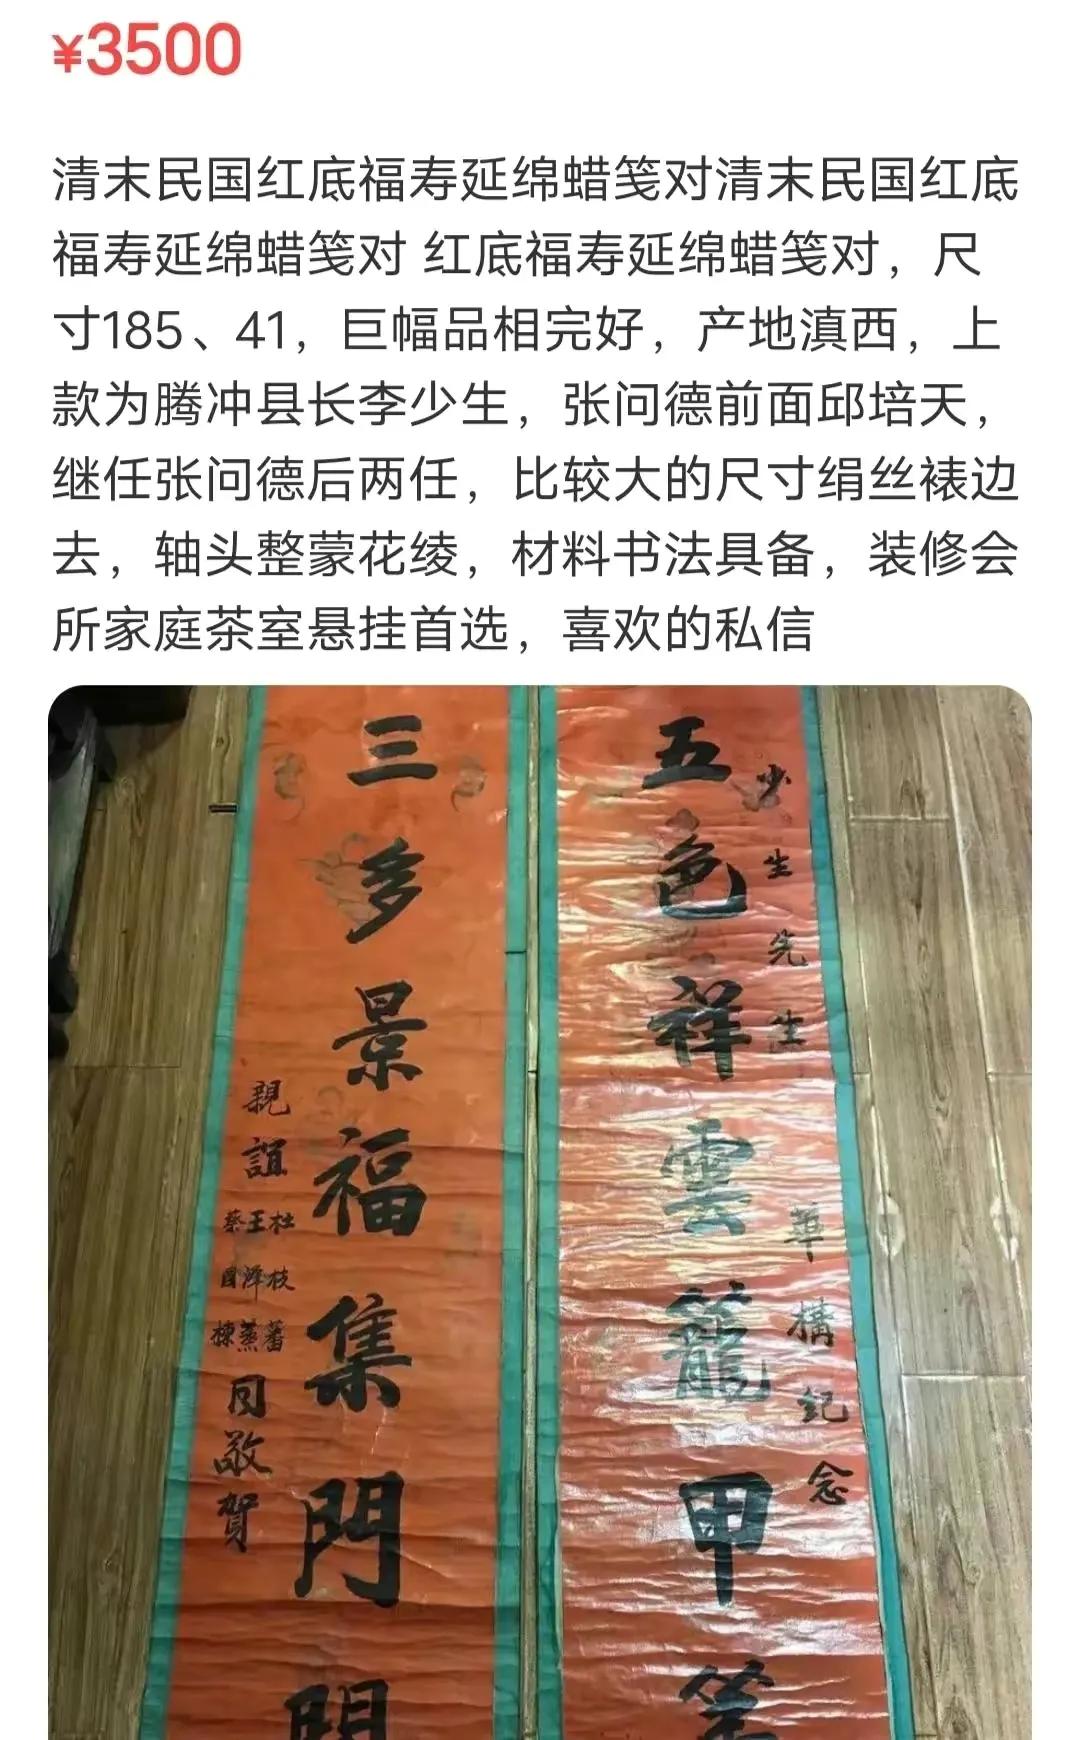 ¥3500
清末民国红底福寿延绵蜡笺对清末民国红底
福寿延绵蜡笺对 红底福寿延绵蜡笺对，尺
寸185、41，巨幅品相完好，产地滇西，上
款为腾冲县长李少生，张问德前面邱培天，
继任张问德后两任，比较大的尺寸绢丝裱边
去，轴头整蒙花绫，材料书法具备，装修会
所家庭茶室悬挂首选，喜欢的私信
少生先生
華構紀念
五色祥雲籠甲
三多景福集門
親誼
杜枝蕃
王澤蒸
蔡國棟
同敬賀